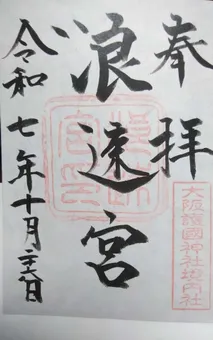 奉拝
浪速宮
令和七年十月二十六日
大阪護國神社境内社